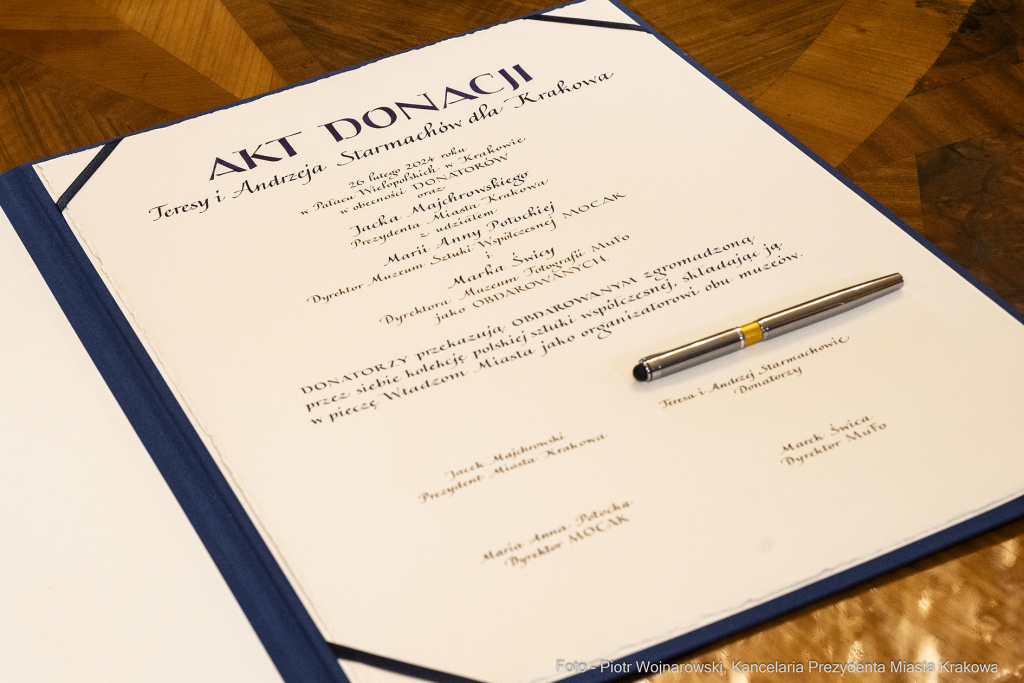 AKT DONACJI
Teresy i Andrzeja Starmachów dla Krakowa
26 lutego 2024 roku
w Pałacu Wielopolskich w Krakowie
w obecności DONATORÓW
oraz
Jacka Majchrowskiego
Prezydenta Miasta Krakowa
z udziałem
Marii Anny Potockiej
Dyrektor Muzeum Sztuki Współczesnej MOCAK
i
Marka Świcy
Dyrektora Muzeum Fotografii MuFo
jako OBDAROWANYCH.
DONATORZY przekazują OBDAROWANYM zgromadzoną
przez siebie kolekcję polskiej sztuki współczesnej, składając ją
w pieczę Władzom Miasta jako organizatorowi obu muzeów.
Teresa i Andrzej Starmachowie
Donatorzy
Jacek Majchrowski
Prezydent Miasta Krakowa
Marek Świca
Dyrektor MuFo
Maria Anna Potocka
Dyrektor MOCAK
Foto - Piotr Wojnarowski, Kancelaria Prezydenta Miasta Krakowa